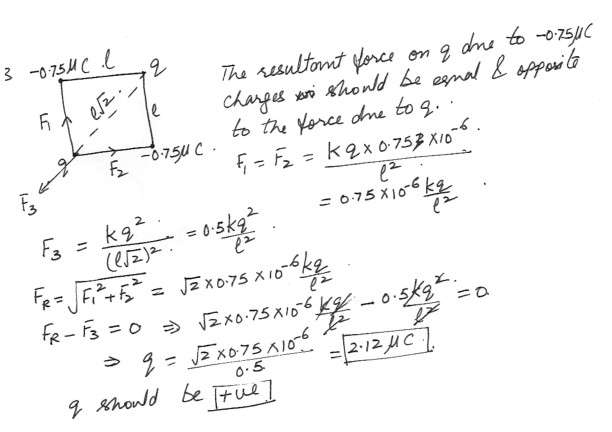 3 -0.75μC l q
The resultant force on q due to -0.75μC
charges should be equal & opposite
to the force due to q.
l√2 l
F₁
q F₂ -0.75μC.
F₃
F₁ = F₂ = kq × 0.75 × 10⁻⁶ / l²
= 0.75 × 10⁻⁶ kq / l²
F₃ = kq² / (l√2)² = 0.5kq² / l²
F_R = √(F₁² + F₂²) = √2 × 0.75 × 10⁻⁶ kq / l²
F_R - F₃ = 0 ⇒ √2 × 0.75 × 10⁻⁶ kq / l² - 0.5kq² / l² = 0
⇒ q = √2 × 0.75 × 10⁻⁶ / 0.5 = 2.12 μC.
q should be +ve